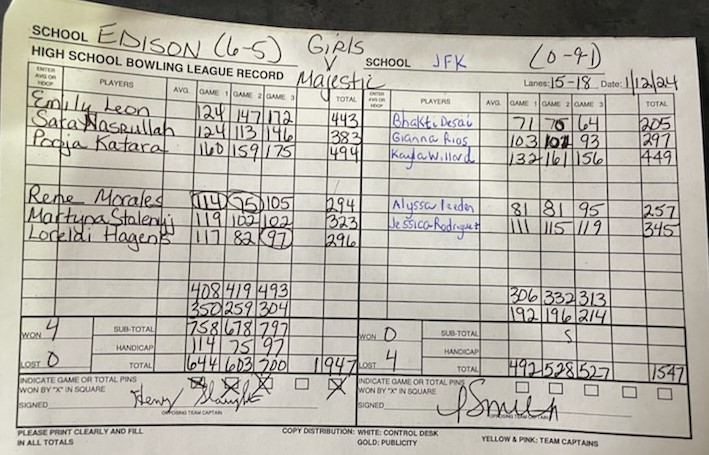 SCHOOL EDISON (6-5) GIRLS SCHOOL JFK (0-91)
HIGH SCHOOL BOWLING LEAGUE RECORD Majestic Lanes: 15-18 Date: 1/12/24
ENTER AVG OR HDCP PLAYERS AVG. GAME 1 GAME 2 GAME 3 TOTAL ENTER AVG OR HDCP PLAYERS AVG. GAME 1 GAME 2 GAME 3 TOTAL
Emily Leon 124 147 172 443 Bhakti Desai 71 70 64 205
Sara Nasrullah 124 113 146 383 Gianna Rios 103 101 93 297
Pooja Katara 160 159 175 494 Kayla Willard 132 161 156 449
Rene Morales 114 75 105 294 Alyssa 81 81 95 257
Martyna 119 102 102 323 Jessica Rodriguez 111 115 119 345
Loreldi Hagens 117 82 97 296
408 419 493 306 332 313
350 259 304 192 196 214
WON 4 SUB-TOTAL 758 678 797 WON 0 SUB-TOTAL
HANDICAP 114 75 97 HANDICAP
LOST 0 TOTAL 644 603 700 1947 LOST 4 TOTAL 492 528 527 1547
INDICATE GAME OR TOTAL PINS WON BY "X" IN SQUARE X X X X INDICATE GAME OR TOTAL PINS WON BY "X" IN SQUARE
SIGNED Henry OPPOSING TEAM CAPTAIN SIGNED OPPOSING TEAM CAPTAIN
PLEASE PRINT CLEARLY AND FILL IN ALL TOTALS COPY DISTRIBUTION: WHITE: CONTROL DESK
GOLD: PUBLICITY YELLOW & PINK: TEAM CAPTAINS